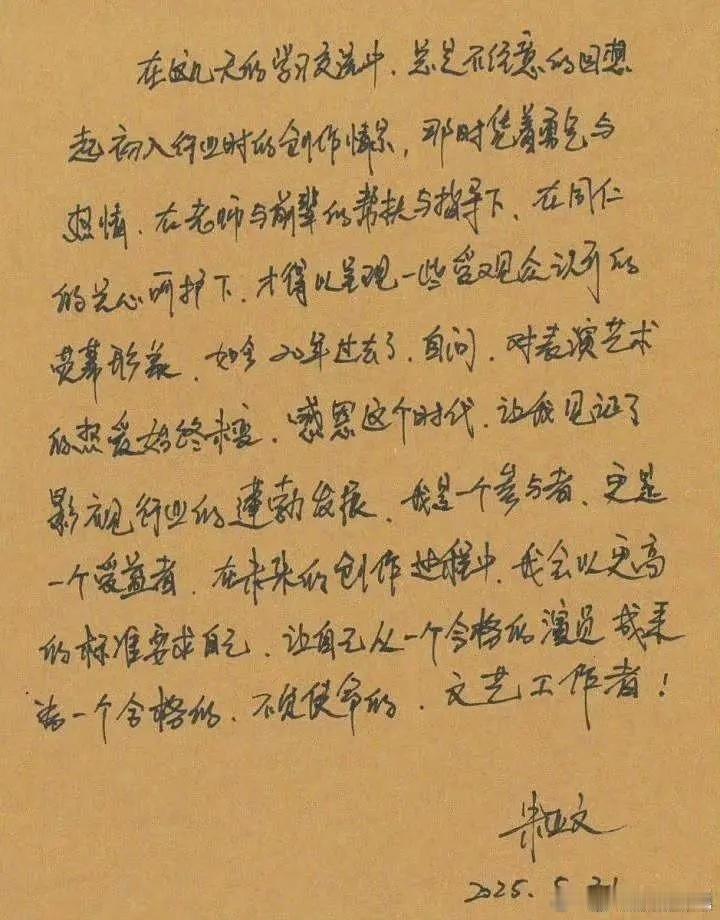 在这几天的学习交流中，总是不经意的回想
起初入行业时的创作情景，那时凭着勇气与
热情，在老师与前辈的帮扶与指导下，在同仁
的关心呵护下，才得以呈现一些受观众认可的
荧幕形象，如今20年过去了，自问，对表演艺术
的热爱始终未变，感恩这个时代，让我见证了
影视行业的蓬勃发展，我是一个参与者，更是
一个受益者，在未来的创作过程中，我会以更高
的标准要求自己，让自己从一个合格的演员成
为一个合格的、不负使命的，文艺工作者！
朱亚文
2025.5.21